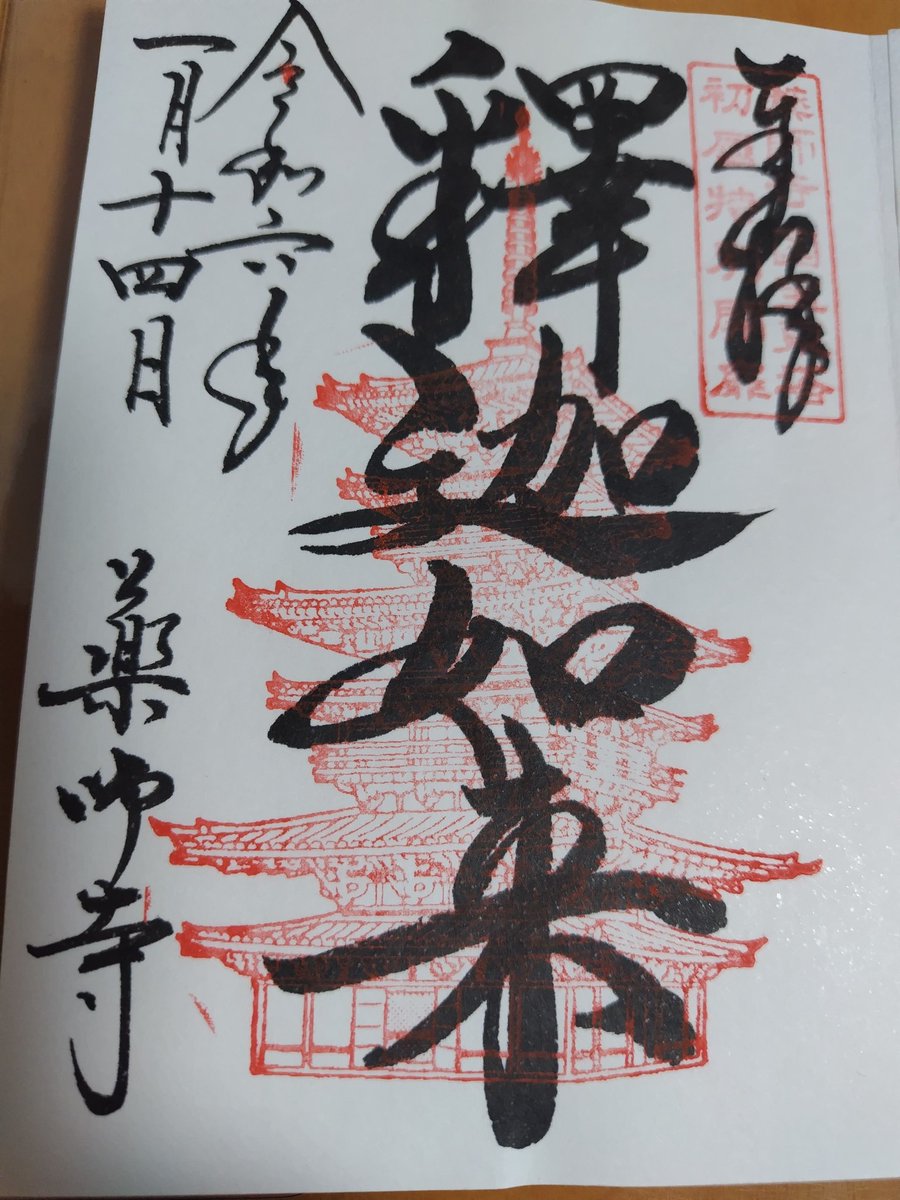 奉拝
釋迦如来
令和六年
一月十四日
薬師寺